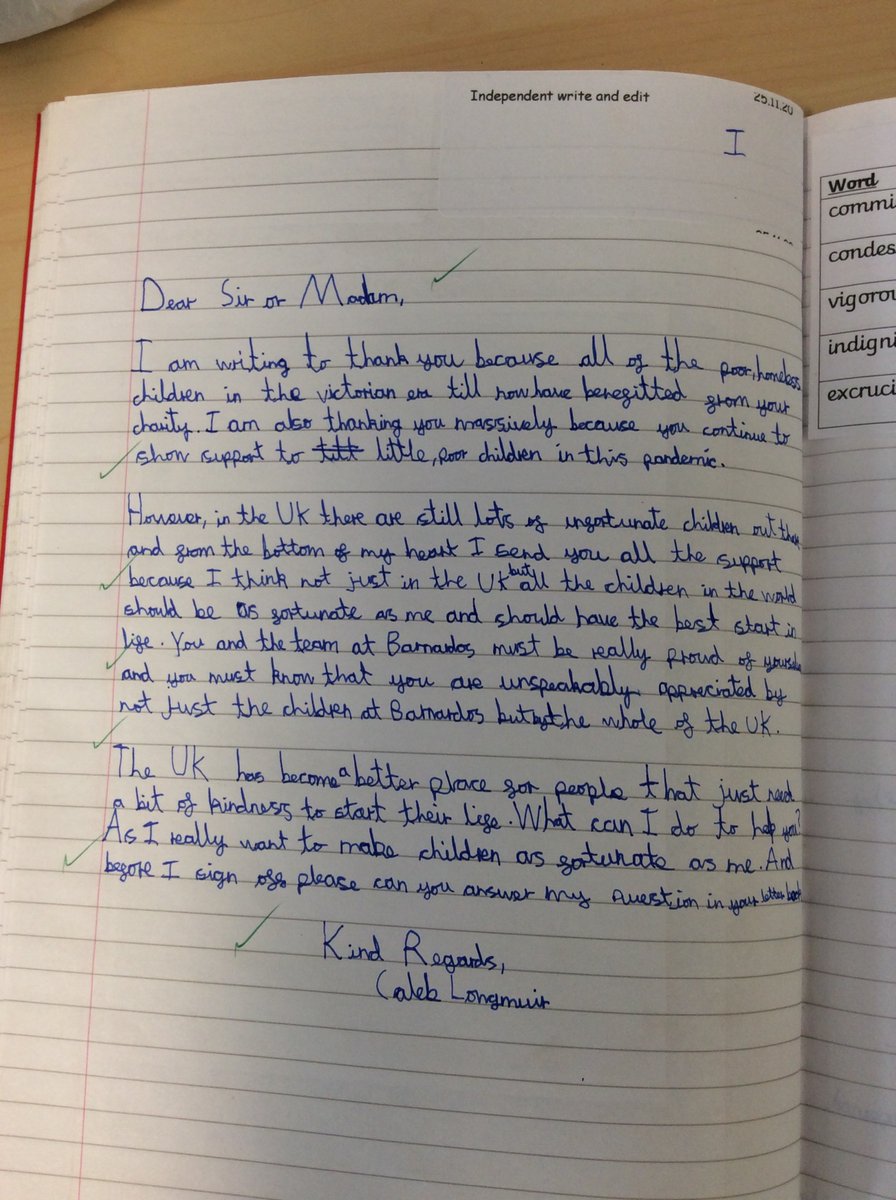 Independent write and edit
25.11.20
I
Dear Sir or Madam,
I am writing to thank you because all of the poor, homeless
children in the victorian era till now have benefitted from your
charity. I am also thanking you massively because you continue to
show support to little, poor children in this pandemic.
However, in the UK there are still lots of unfortunate children out there
and from the bottom of my heart I send you all the support
because I think not just in the UK but all the children in the world
should be as fortunate as me and should have the best start in
life. You and the team at Barnardos must be really proud of
and you must know that you are unspeakably appreciated by
not just the children at Barnardos but by the whole of the UK.
The UK has become a better place for people that just need
a bit of kindness to start their life. What can I do to help you?
As I really want to make children as fortunate as me. And
before I sign off please can you answer my question in your letter back
Kind Regards,
Caleb Longmuir
Word
commi
condes
vigorou
indigni
excruci